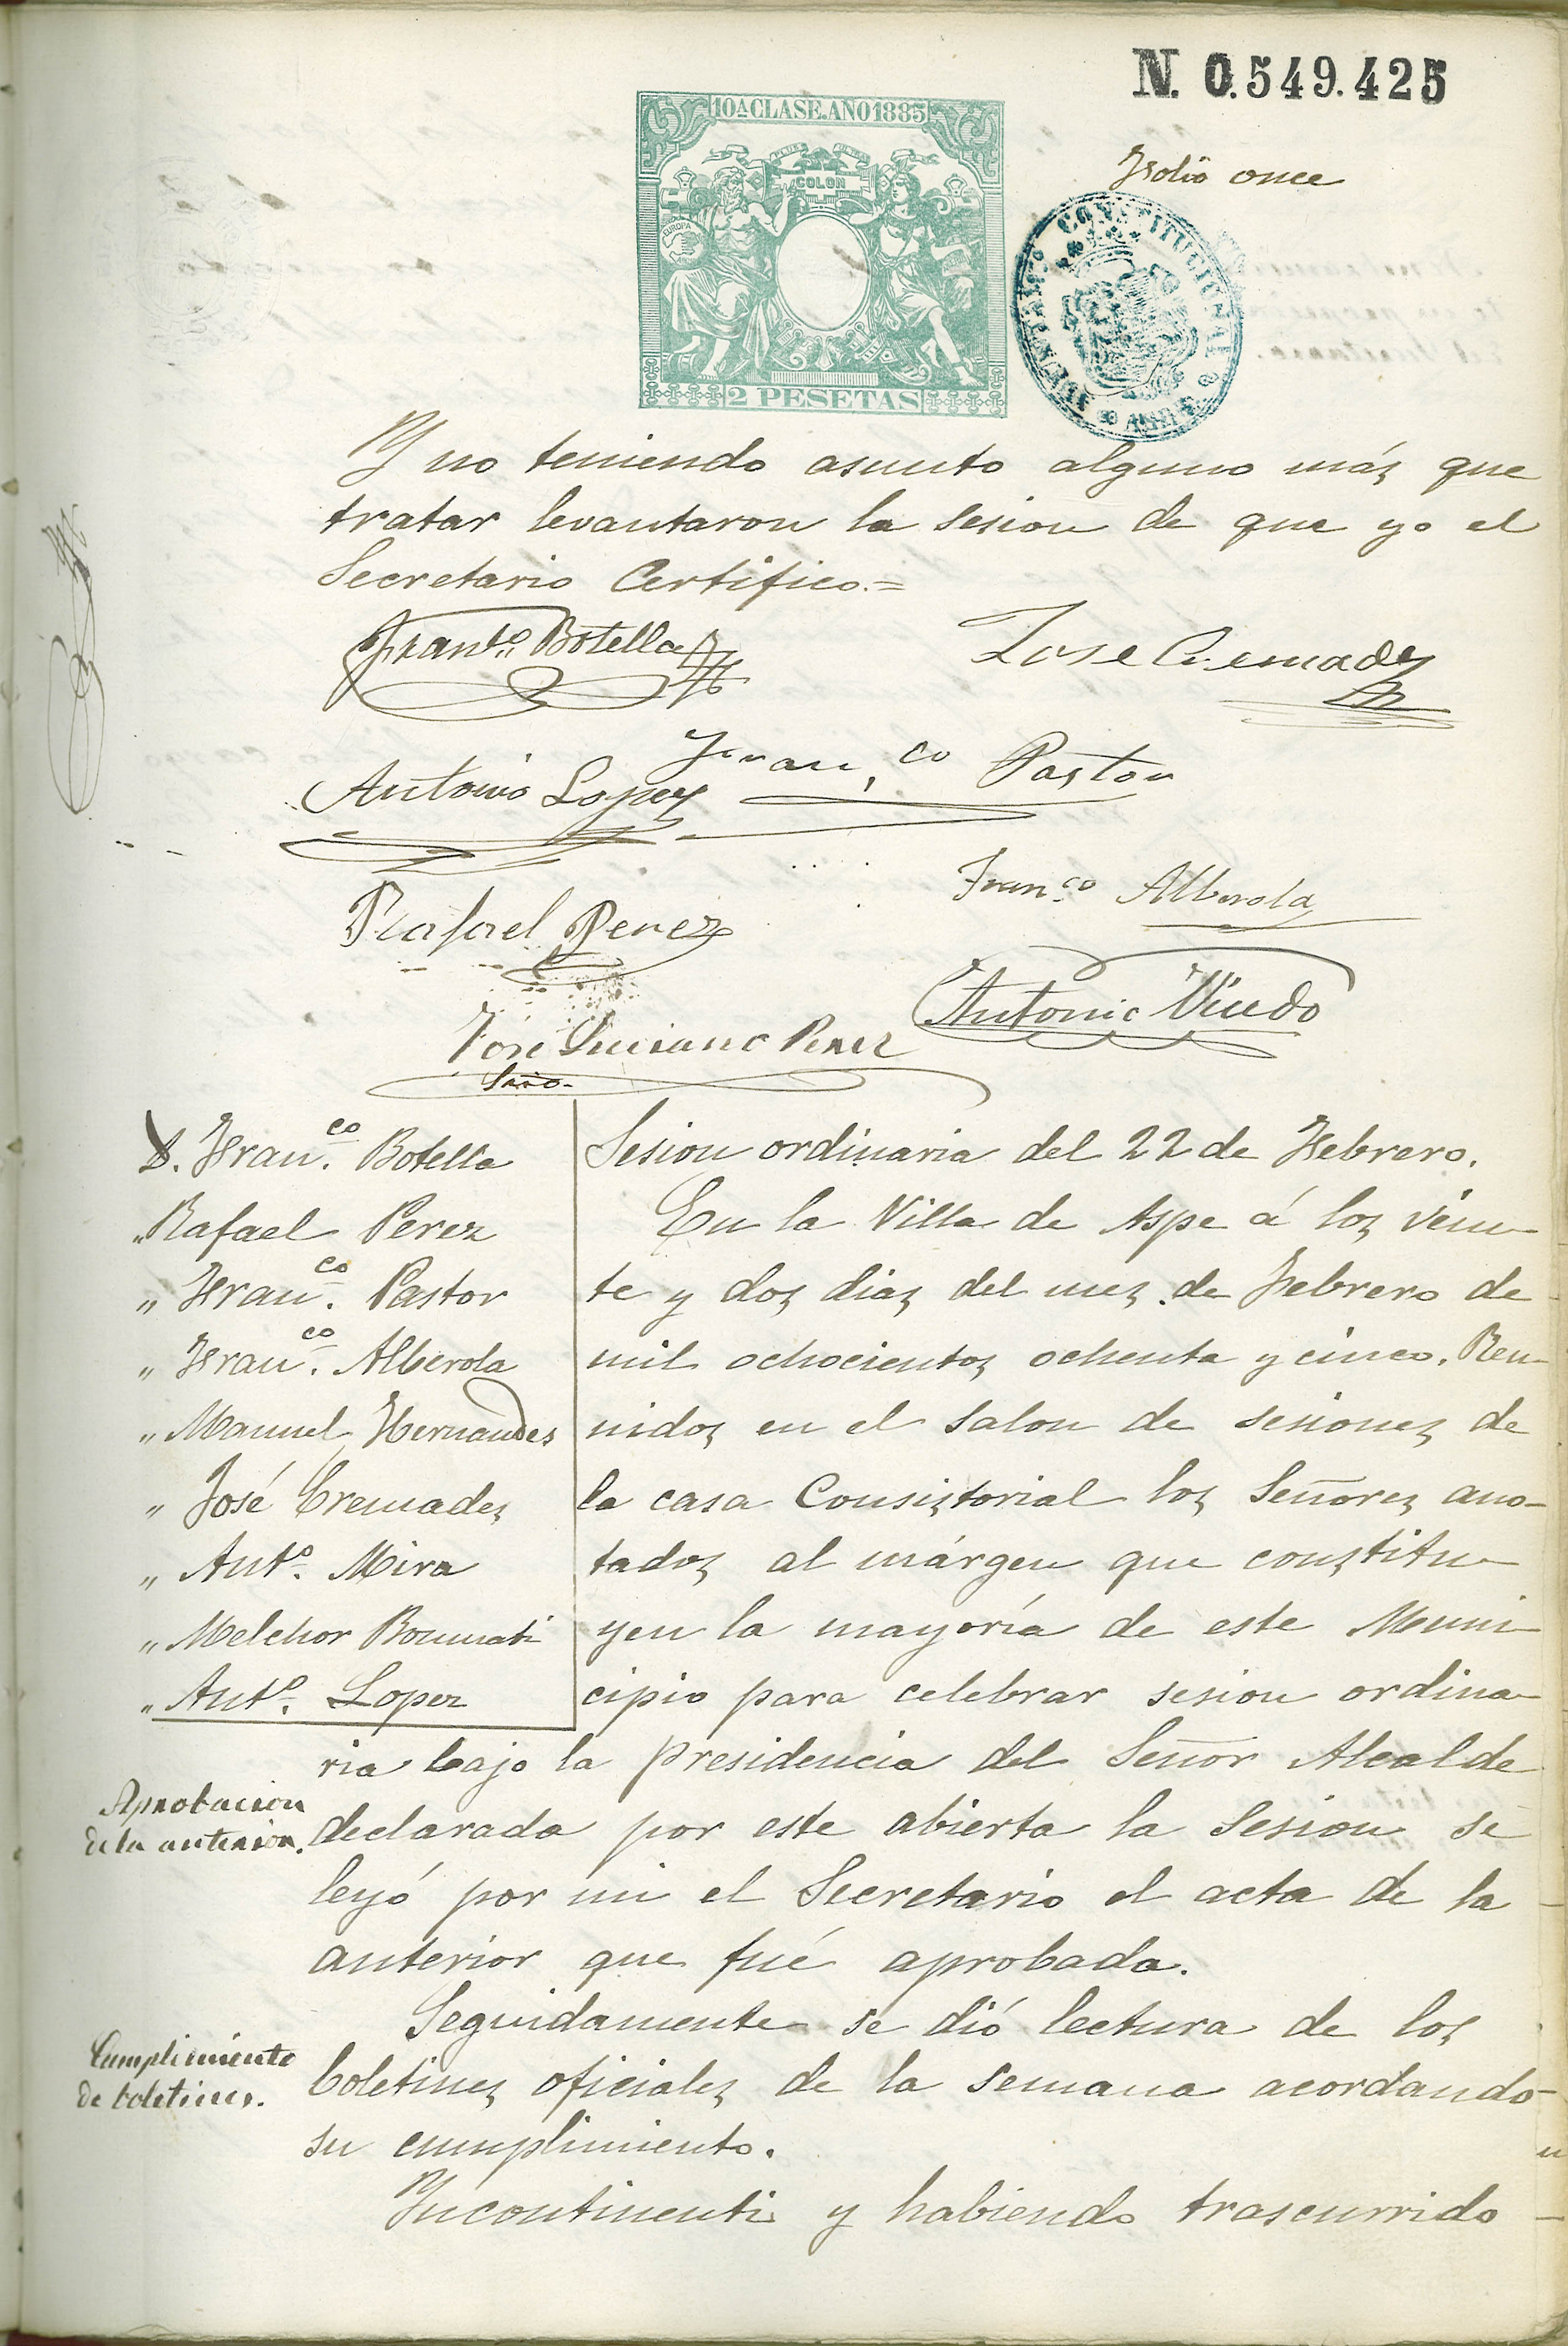 N. 0.549.425
10ª CLASE. AÑO 1885
PLUS ULTRA
COLON
EUROPA
2 PESETAS
Folio once
CONSTITUCIONAL
Y no teniendo asunto alguno más que
tratar levantaron la sesion de que yo el
Secretario Certifico.=
Franco. Botella
Jose Cremades
Antonio Lopez
Fran.co Pastor
Rafael Perez
Fran.co Alberola
Antonio Viudo
José Luciano Perez
Srio.
D. Fran.co Botella
" Rafael Perez
" Fran.co Pastor
" Fran.co Alberola
" Manuel Hernandes
" José Cremades
" Anto. Mira
" Melchor Bonmati
" Anto. Lopez
Sesion ordinaria del 22 de Febrero.
En la Villa de Aspe á los vein-
te y dos dias del mes de Febrero de
mil ochocientos ochenta y cinco. Reu-
nidos en el salon de sesiones de
la casa Consistorial los Señores ano-
tados al márgen que constitu-
yen la mayoría de este Muni-
cipio para celebrar sesion ordina-
ria bajo la presidencia del Señor Alcalde
Aprobacion
de la anterior.
declarada por este abierta la Sesion se
leyó por mi el Secretario el acta de la
anterior que fué aprobada.
Seguidamente se dió lectura de los
Cumplimiento
de boletines.
boletines oficiales de la semana acordando
su cumplimiento.
Yncontinenti y habiendo trascurrido